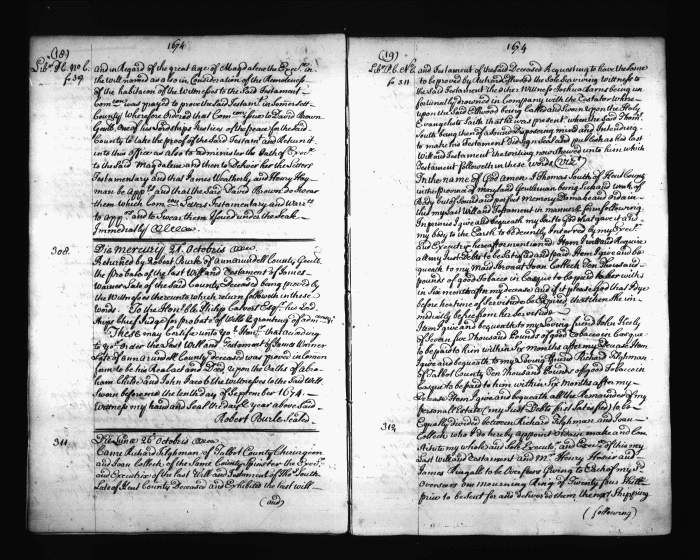 (18) 1674
and in Regard of the great Age of Magdalene the Exec. in
the will named as also in Consideration of the Remoteness
of the habitacon of the Witnesses to the Said Testament
Com was prayed to prove the said Testam in Somersett
County Wherefore Ordered that Com Issue to David Brown
Gent. One of his Lordships Justices of the peace for the said
County to take the proof of the said Testam and Return it
into this Office as also to administer the Oath of Exec
to the said Magdalene and then to Deliver her the Letters
Testamentary and that James Weatherly and Henry Hay
man be App and that the said David Brown do Swear
them which Com Letters Testamentary and Warr
to app and to Swear them Issued under the Seale
Immediatly
308. Die Mercurij 21 Octobris
Returned by Robert Burle of Annarundell County Gent.
the probate of the last Will and Testament of James
Warner Late of the said County Deceased being proved by
the Witnesses thereunto which return followeth in these
words. To the Hon.ble Philip Calvert Esq. his Lord
ships Chief Judge for probate of Wills & granting of adm
These may Certifie unto yo Hono that according
to yo Order the Last Will and Testament of James Warner
Late of annarundell County deceased was proved in Comon
form to be his Real act and Deed upon the Oaths of Abra
ham Child and John Jacob the Witnesses to the Said Will
Sworn before me the tenth day of September 1674.
Witness my hand and Seal the day & year above Said
Robert Burle Sealed
311 Die Lunæ 26 Octobris
Came Richard Tilghman of Talbot County Chirurgeon
and Joan Colleck of the Same County Spinster the Exec
and Executrix of the last Will and Testament of Tho South
Late of Kent County Deceased and Exhibited the last will
(and)
(19) 1674
and Testament of the said Deceased Requesting to have the same
to be proved by Richard the Sole Surviving Witness to
the said Testament the other Witness Joshua being un
fortunately drowned in Company with the Testator where
upon the said Edward being Called and Sworn upon the Holy
Evangelists Saith that he was present when the said Thom
South being then of a Sound disposeing mind and Intending
to make his Testament Did Sign seal and publish as his last
Will and Testament the writeing now shewed unto him which
Testament followeth in these words (Viz.)
In the name of God Amen I Thomas South of Kent County
in the province of Maryland Gentleman being Sick and weak of
Body but of Sound and perfect Memory Do make and ordain
this my last Will and Testament in manner & form following
In primis I give and bequeath my Soul to God that gave it and
my body to the Earth to be decently Interred by my Exec
and Executrix hereafter mentioned Item I will and Require
all my Just Debts to be Satisfied and paid Item I give and be
queath to my Maid Servant Joan Colleck Ten Thousand
pounds of good Tobacco in Casque to be paid her with
in Six months after my decease and if it please God that I dye
before her time of Servitude be Expired that then She im
mediatly be free from her Service
Item I give and bequeath to my loving friend John
of Seven five Thousand pounds of good Tobacco in Casque
to be paid to him within Six Months after my decease Item
I give and bequeath to my loving friend Richard Tilghman
of Talbot County Ten Thousand pounds of good Tobacco in
Casque to be paid to him within Six Months after my
Decease Item I give and bequeath all the Remainder of my
personal Estate (my Just Debts first Satisfied) to be
Equally divided between Richard Tilghman and Joan
312 Colleck who I do hereby appoint Ordain make and Con
stitute my whole and Sole Execut. and Execut. of this my
Last Will and Testament and M. Henry Hosier and
James Ringall to be Overseers Giving to Each of my
Overseers one mourning Ring of Twenty four Shill
price to be sent for and delivered them the next Shipping
(following)